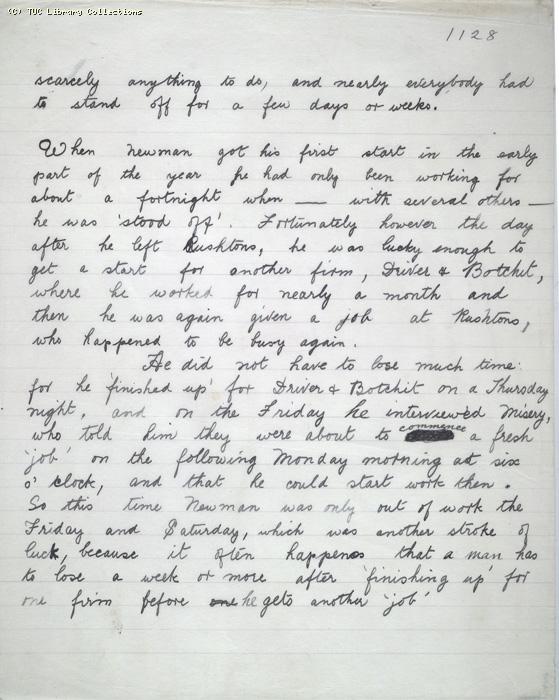 (C) TUC Library Collections
1128
scarcely anything to do, and nearly everybody had
to stand off for a few days or weeks.
When Newman got his first start in the early
part of the year he had only been working for
about a fortnight when — with several others —
he was 'stood off'. Fortunately however the day
after he left Rushtons, he was lucky enough to
get a start for another firm, Driver & Botchit,
where he worked for nearly a month and
then he was again given a job at Rushtons,
who happened to be busy again.
He did not have to lose much time:
for he 'finished up' for Driver & Botchit on a Thursday
night, and on the Friday he interviewed Misery,
who told him they were about to commence a fresh
'job' on the following Monday morning at six
o'clock, and that he could start work then.
So this time Newman was only out of work the
Friday and Saturday, which was another stroke of
luck, because it often happens that a man has
to lose a week or more after 'finishing up' for
one firm before one he gets another 'job'